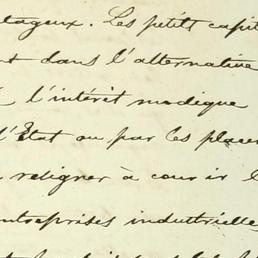 tageux. Les petits capit
nt dans l'alternative
l'intérêt modique
l'Etat ou par les placem
résigner à courir l
ntreprises industrielle